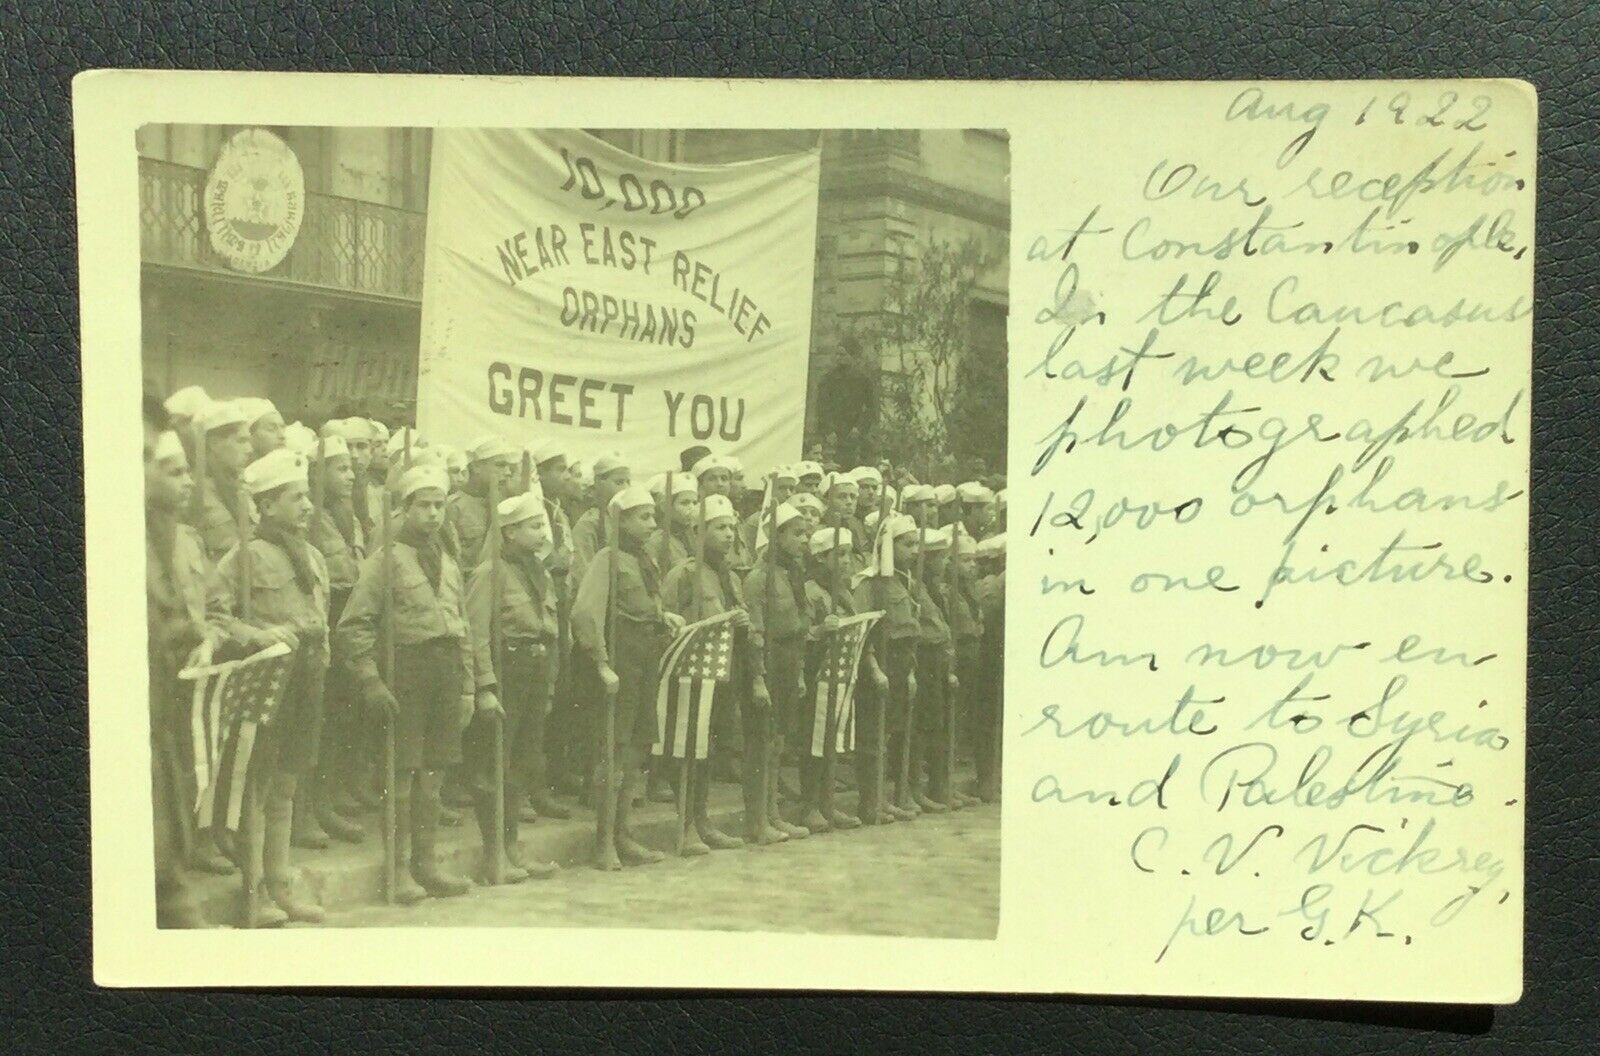 10,000
NEAR EAST RELIEF
ORPHANS
GREET YOU
Aug 1922
Our reception
at Constantinople,
In the Caucasus
last week we
photographed
12,000 orphans
in one picture.
Am now en
route to Syria
and Palestine.
C. V. Vickrey,
per G.K.